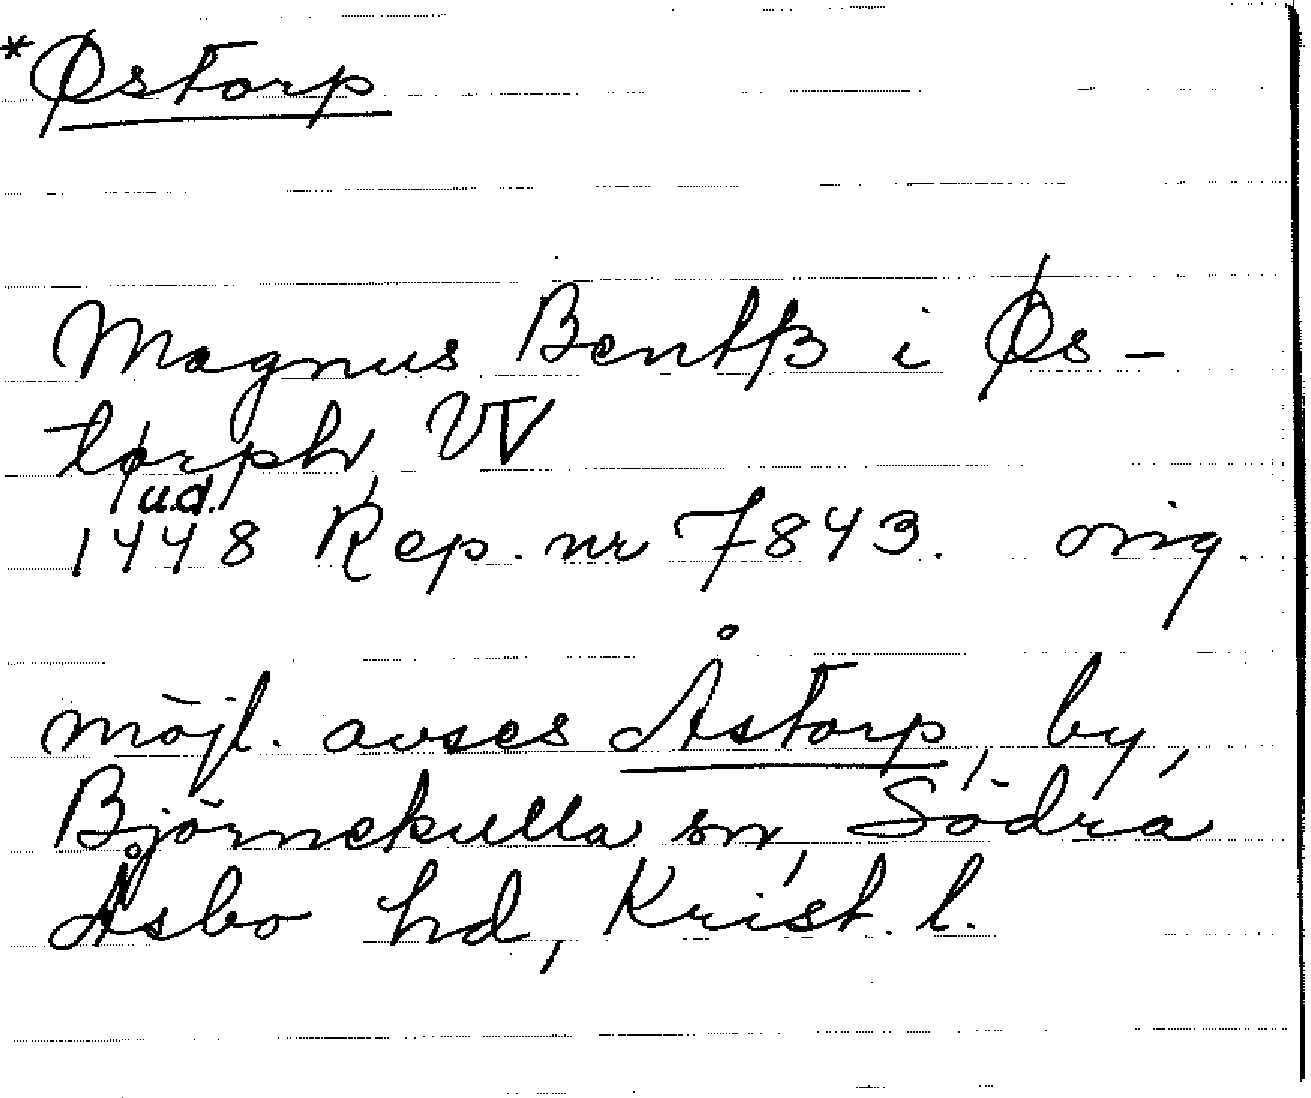 *Østorp
Magnus Bentß i Øs-
tørph, VT
u.d.
1448 Rep. nr 7843. orig.
möjl. avses Åstorp, by,
Björnekulla sn, Södra
Åsbo hd, Krist. l.